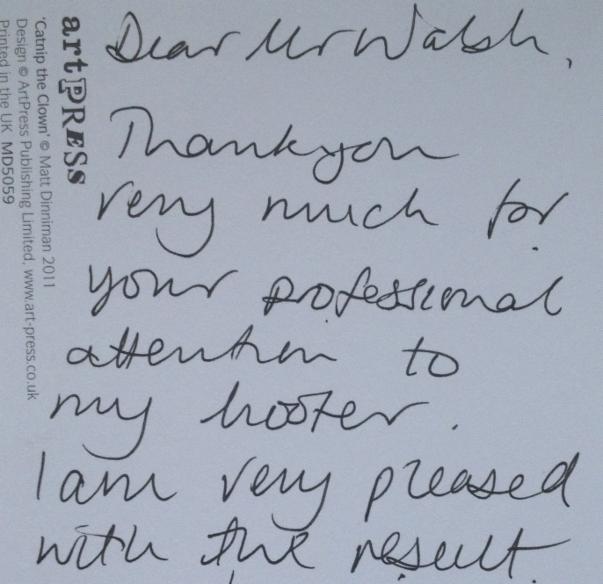 Dear Mr Walsh,
Thankyou
very much for
your professional
attention to
my hooter.
I am very pleased
with the result.
artPRESS
'Catnip the Clown' © Matt Dinniman 2011
Design © ArtPress Publishing Limited, www.art-press.co.uk
Printed in the UK MD5059